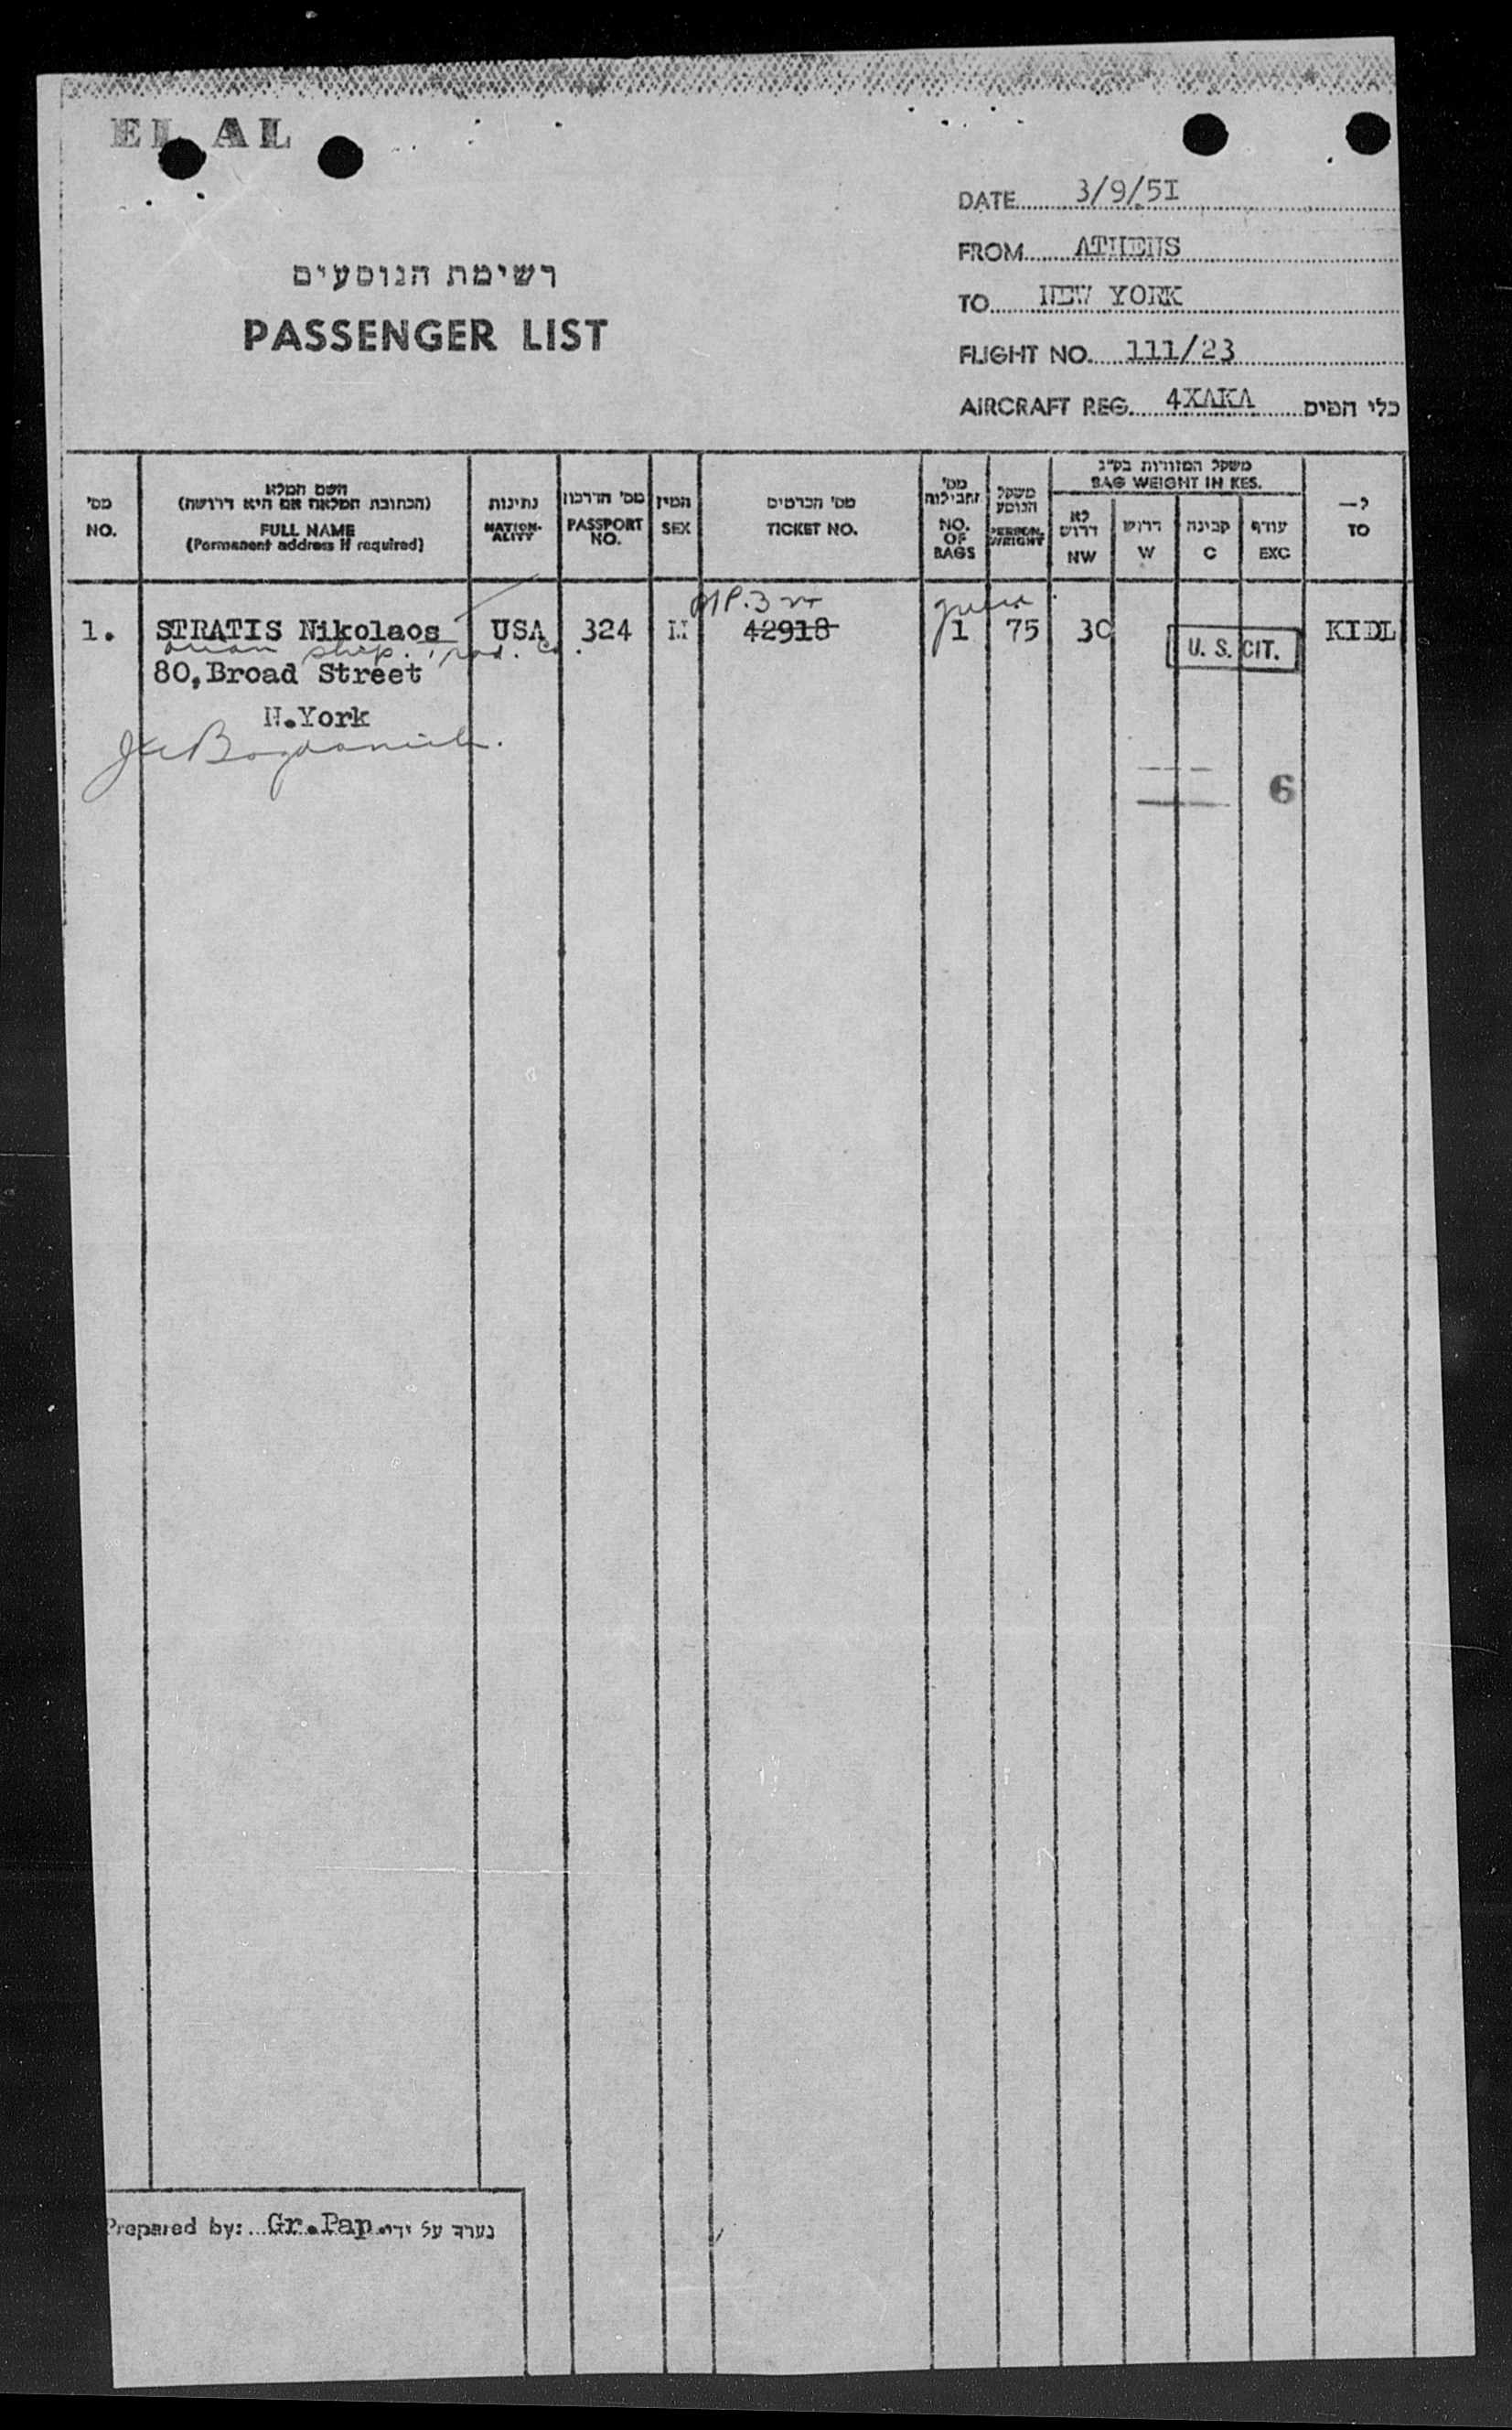 EL AL
DATE 3/9/5I
FROM ATHENS
TO NEW YORK
FLIGHT NO. 111/23
AIRCRAFT REG. 4XAKA כלי הטיס
רשימת הנוסעים
PASSENGER LIST
מס' NO.
השם המלא (הכתובת המלאה אם היא דרושה) FULL NAME (Permanent address if required)
נתינות NATION-ALITY
מס' הדרכון PASSPORT NO.
המין SEX
מס' הכרטיס TICKET NO.
מס' החבילות NO. OF BAGS
משקל הנוסע PERSON. WEIGHT
משקל המזודות בק"ג BAG WEIGHT IN KES.
לא דרוש NW
דרוש W
קבינה C
עודף EXC
ל— TO
1. STRATIS Nikolaos USA 324 M 42918 1 75 30 U. S. CIT. KIDL
ship.
80,Broad Street
N.York
6
Prepared by: Gr.Pap. נערך על ידי